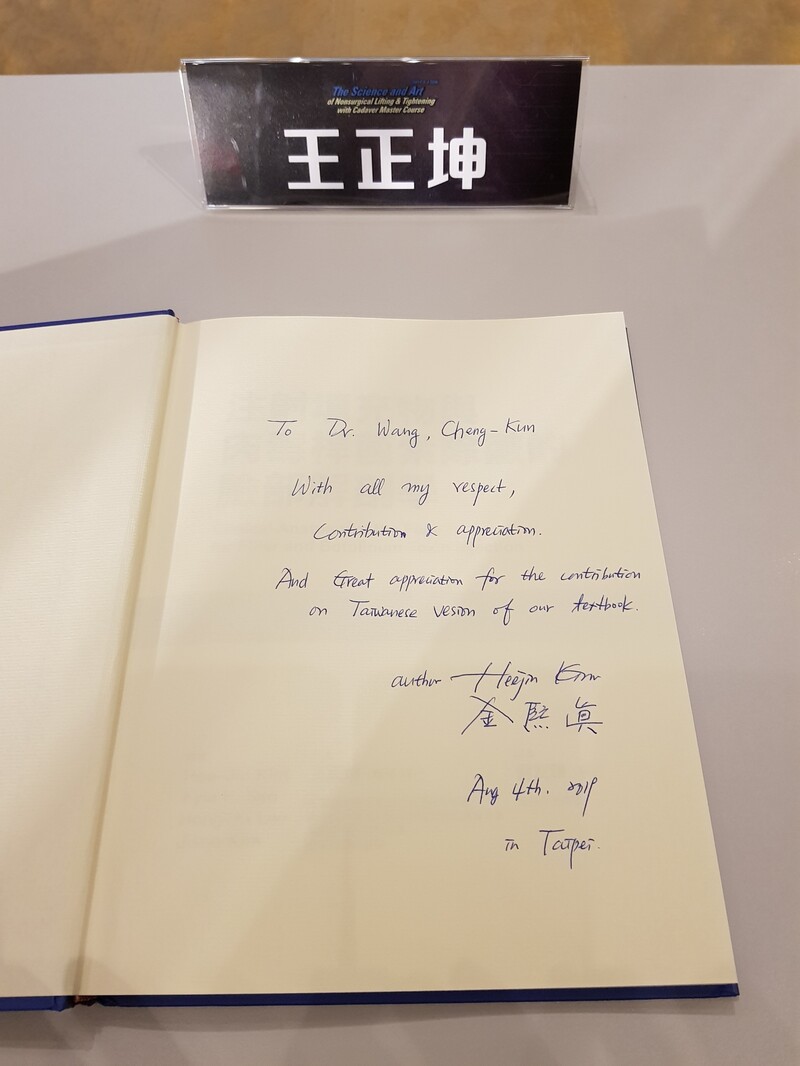 The Science and Art
of Nonsurgical Lifting & Tightening
with Cadaver Master Course
王正坤
To Dr. Wang, Cheng-Kun
With all my respect,
Contribution & appreciation.
And Great appreciation for the contribution
on Taiwanese vesion of our textbook.
author Heejin Kim
金熙眞
Aug 4th. 2019
in Taipei.